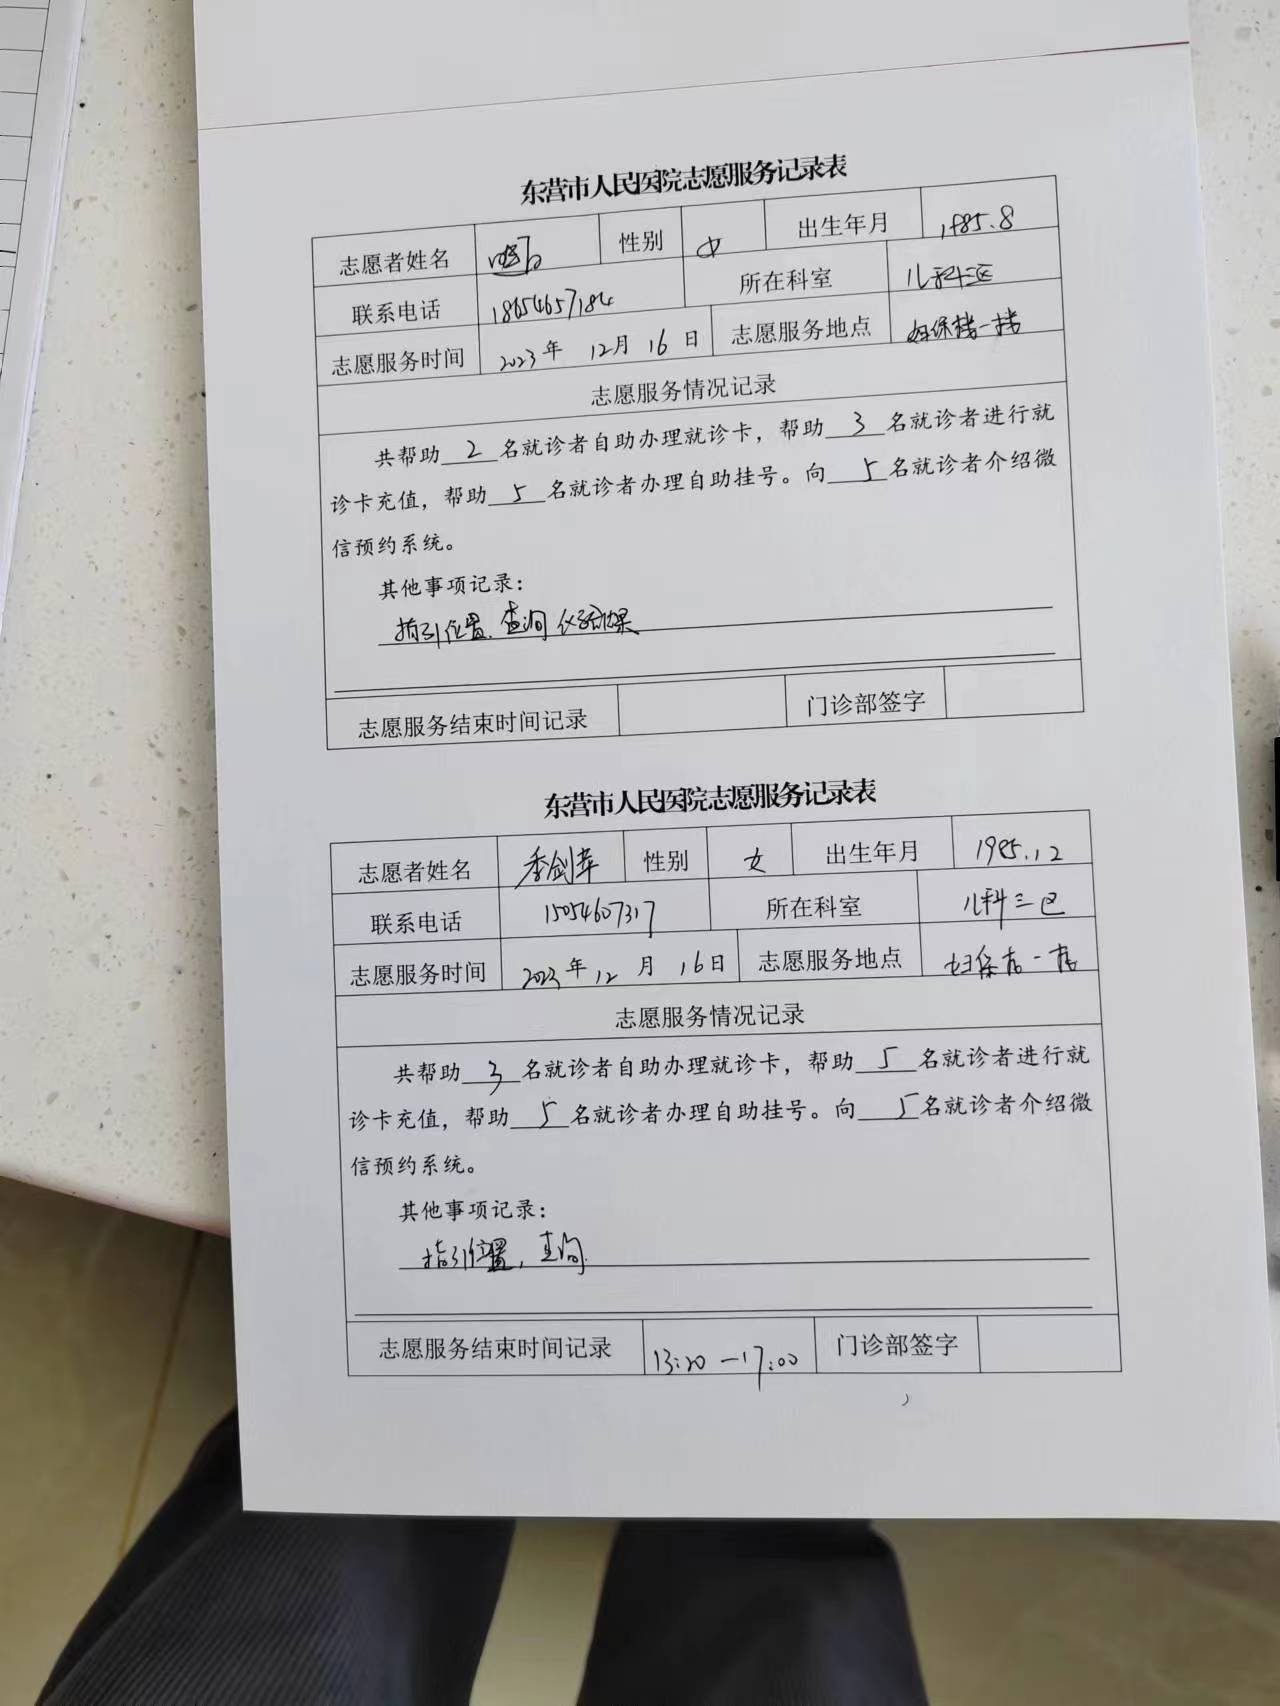 东营市人民医院志愿服务记录表
志愿者姓名 性别 女 出生年月 1985.8
联系电话 18654657184 所在科室 儿科三区
志愿服务时间 2023年 12月 16日 志愿服务地点 妇保楼一楼
志愿服务情况记录
共帮助 2 名就诊者自助办理就诊卡，帮助 3 名就诊者进行就
诊卡充值，帮助 5 名就诊者办理自助挂号。向 5 名就诊者介绍微
信预约系统。
其他事项记录：
指引位置、查询化验结果
志愿服务结束时间记录 门诊部签字
东营市人民医院志愿服务记录表
志愿者姓名 季剑苹 性别 女 出生年月 1985.12
联系电话 15054607317 所在科室 儿科三区
志愿服务时间 2023年12月 16日 志愿服务地点 妇保楼一楼
志愿服务情况记录
共帮助 3 名就诊者自助办理就诊卡，帮助 5 名就诊者进行就
诊卡充值，帮助 5 名就诊者办理自助挂号。向 5 名就诊者介绍微
信预约系统。
其他事项记录：
指引位置，查询.
志愿服务结束时间记录 13:20—17:00 门诊部签字